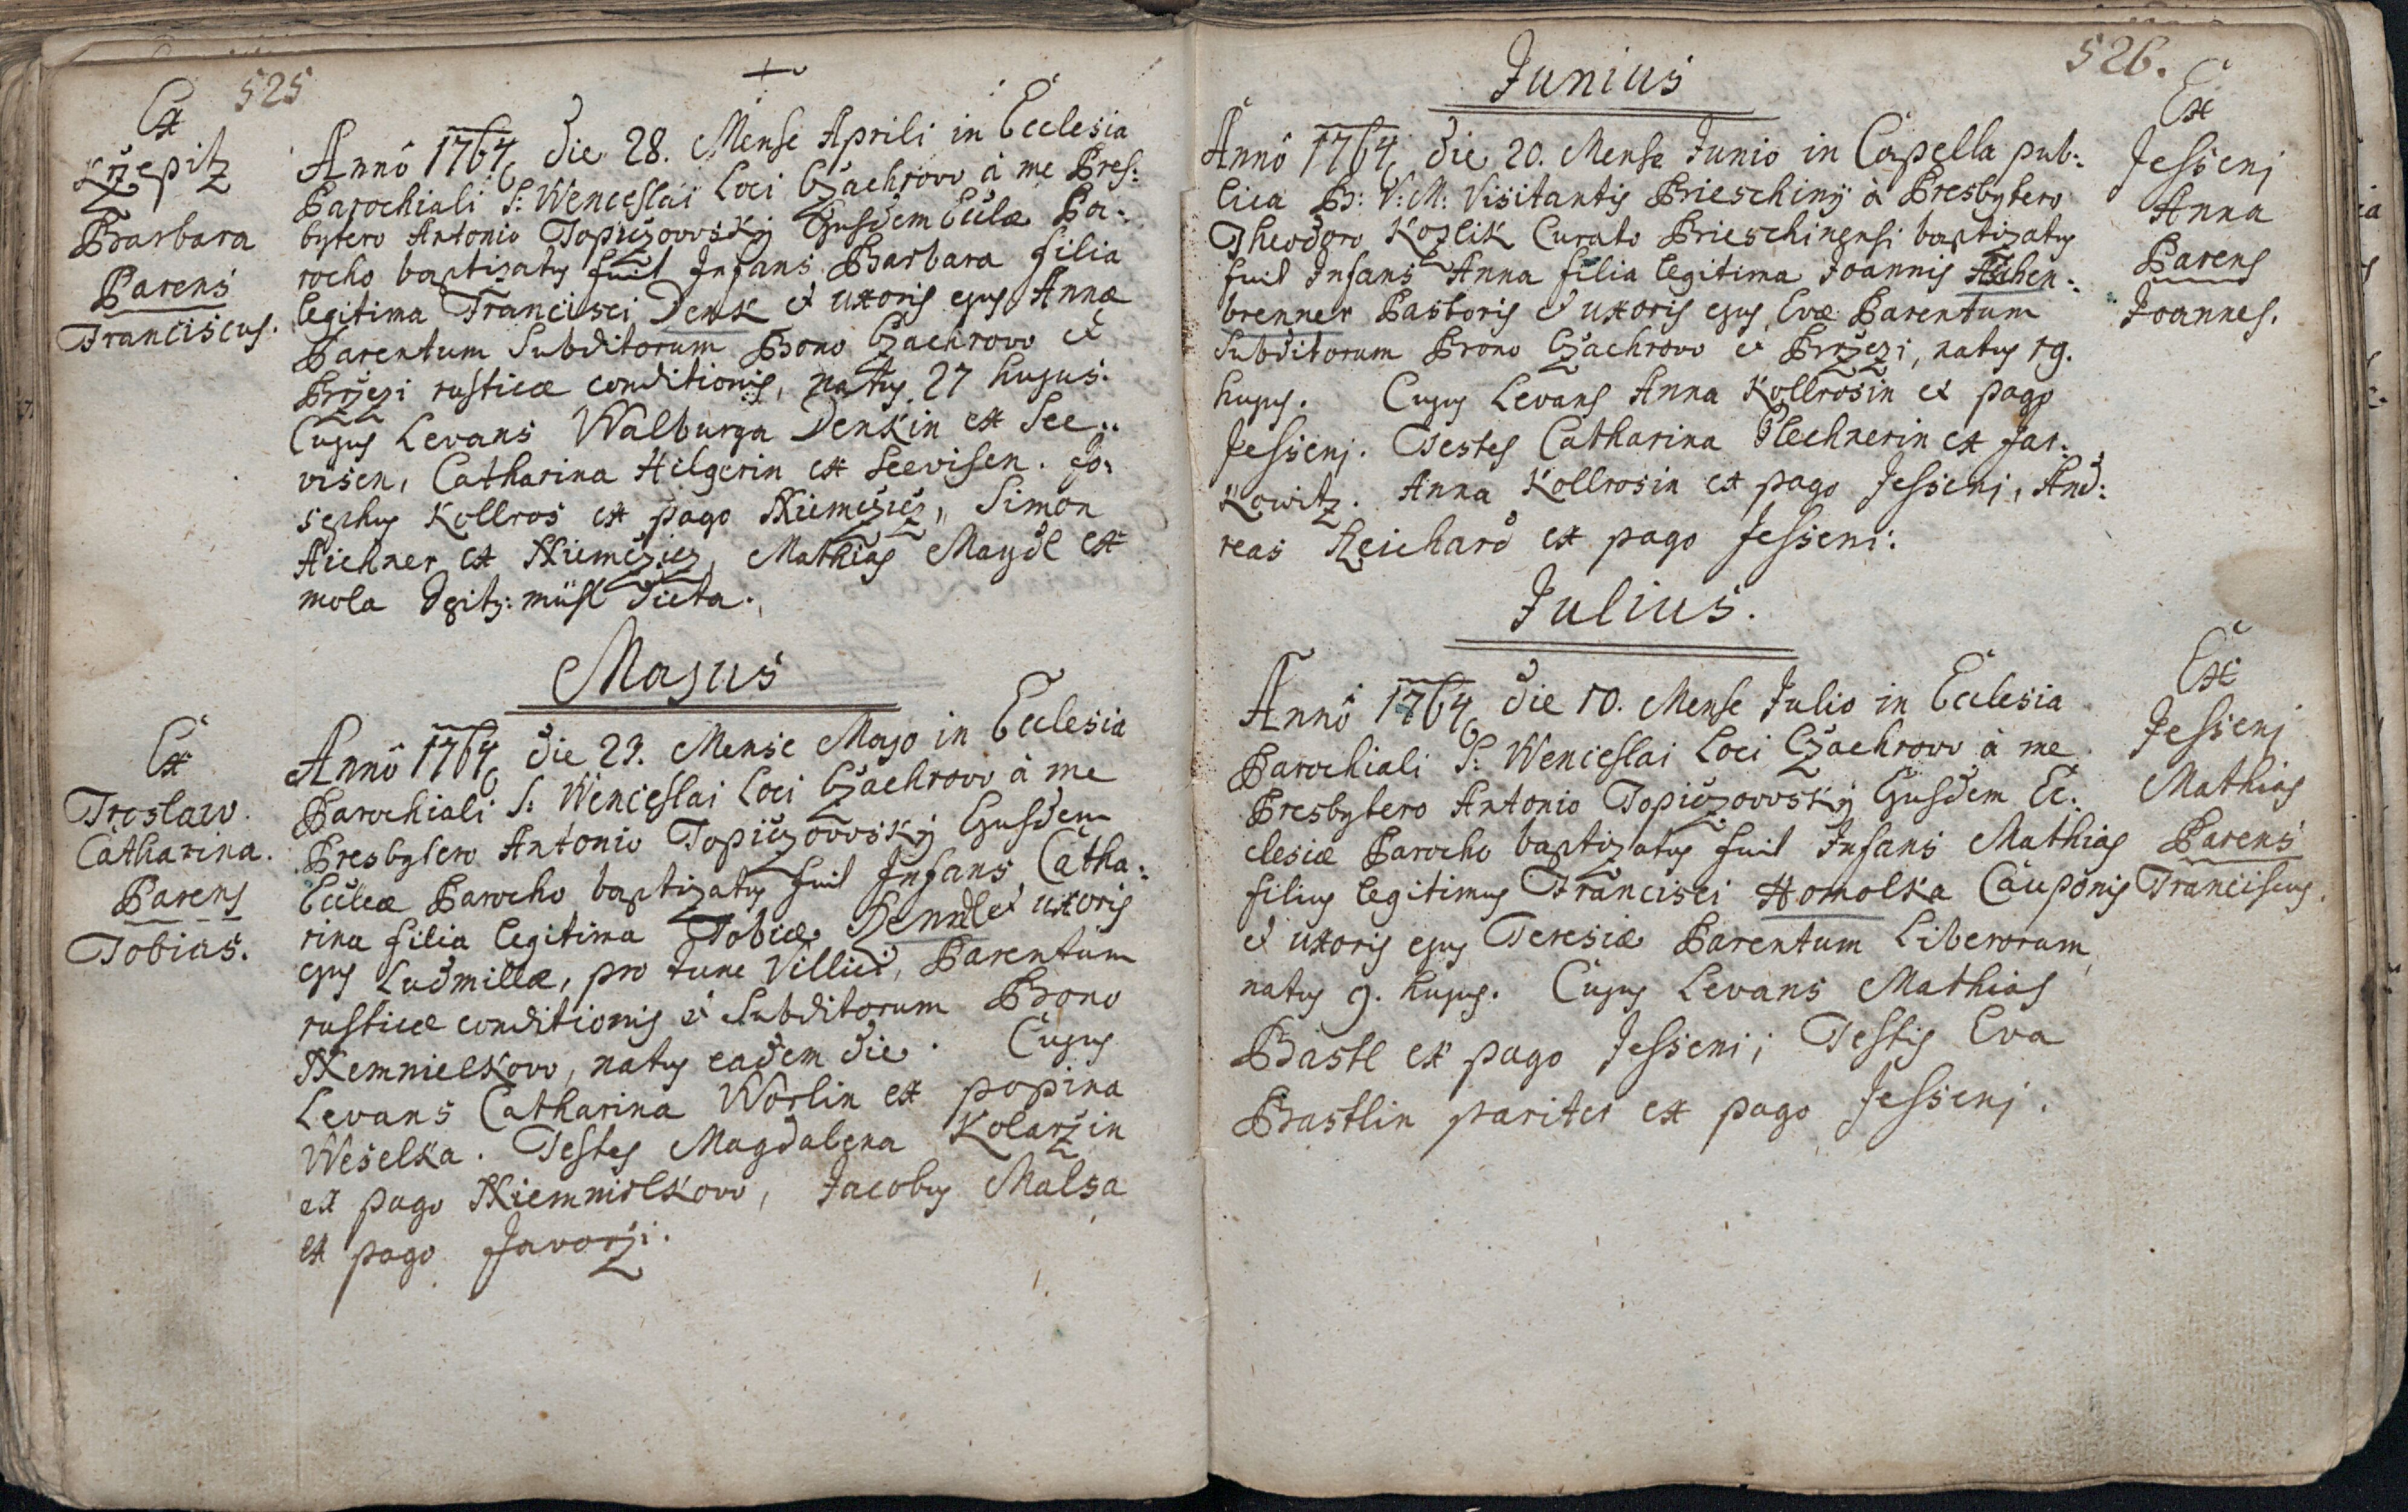 525
Ex
Kržepitz
Barbara
Parens
Franciscus.
Annô 1764 die 28. Mense Aprili in Ecclesia
Parochiali S: Wenceslai Loci Czachrow à me Pres:
bytero Antonio Topiczowský Ejusdem Eccłæ Pa:
rocho baptizatus fuit Infans Barbara filia
legitima Francisci Denk et uxoris ejus Annæ
Parentum Subditorum Bono Czachrow et
Bržezi rusticæ conditionis, natus 27 hujus.
Cujus Levans Walburga Denkin ex See:
visen, Catharina Hilgerin ex Seevisen. Jo:
sephus Kollros ex pago Niemčzicz, Simon
Aichner ex Niemčzicz, Mathias Maydl ex
mola müsl dicta.
Majus
Ex
Treslaw.
Catharina.
Parens
Tobias.
Annô 1764 die 23. Mense Majo in Ecclesia
Parochiali S: Wenceslai Loci Czachrow à me
Presbytero Antonio Topiczowský Ejusdem
Eccłæ Parocho baptizatus fuit Infans Catha:
rina filia legitima Tobiæ Denndl et uxoris
ejus Ludmillæ, pro tunc Villici, Parentum
rusticæ conditionis et Subditorum Bono
Nemnielkow, natus eadem die. Cujus
Levans Catharina Wörlin ex popina
Weselka. Testes Magdalena Kolaržin
ex pago Niemnielkow, Jacobus Malsa
ex pago Javorži.
526.
Junius
Annô 1764 die 20. Mense Junio in Capella pub:
lica B: V: M: Visitantis Brieschinÿ à Presbytero
Theodoro Kozlik Curato Brieschinensi baptizatus
fuit Infans Anna filia legitima Joannis Aschen:
brenner Pastoris et uxoris ejus Evæ Parentum
Subditorum Bono Czachrow et Bržezi, natus 19.
hujus. Cujus Levans Anna Kollrosin ex pago
Jessenj. Testes Catharina Plechnerin ex Jar:
kowitz. Anna Kollrosin ex pago Jessenj, And:
reas Reichard ex pago Jesseni.
Ex
Jessenj
Anna
Parens
Joannes.
Julius.
Annô 1764 die 10. Mense Julio in Ecclesia
Parochiali S: Wenceslai Loci Czachrow à me
Presbytero Antonio Topiczowský Ejusdem Ec:
clesiæ Parocho baptizatus fuit Infans Mathias
filius legitimus Francisci Homolka Cauponis
et uxoris ejus Teresiæ Parentum Liberorum
natus 9. hujus. Cujus Levans Mathias
Bastl ex pago Jesseni; Testis Eva
Bastlin pariter ex pago Jessenj.
Ex
Jessenj
Mathias
Parens
Franciscus.